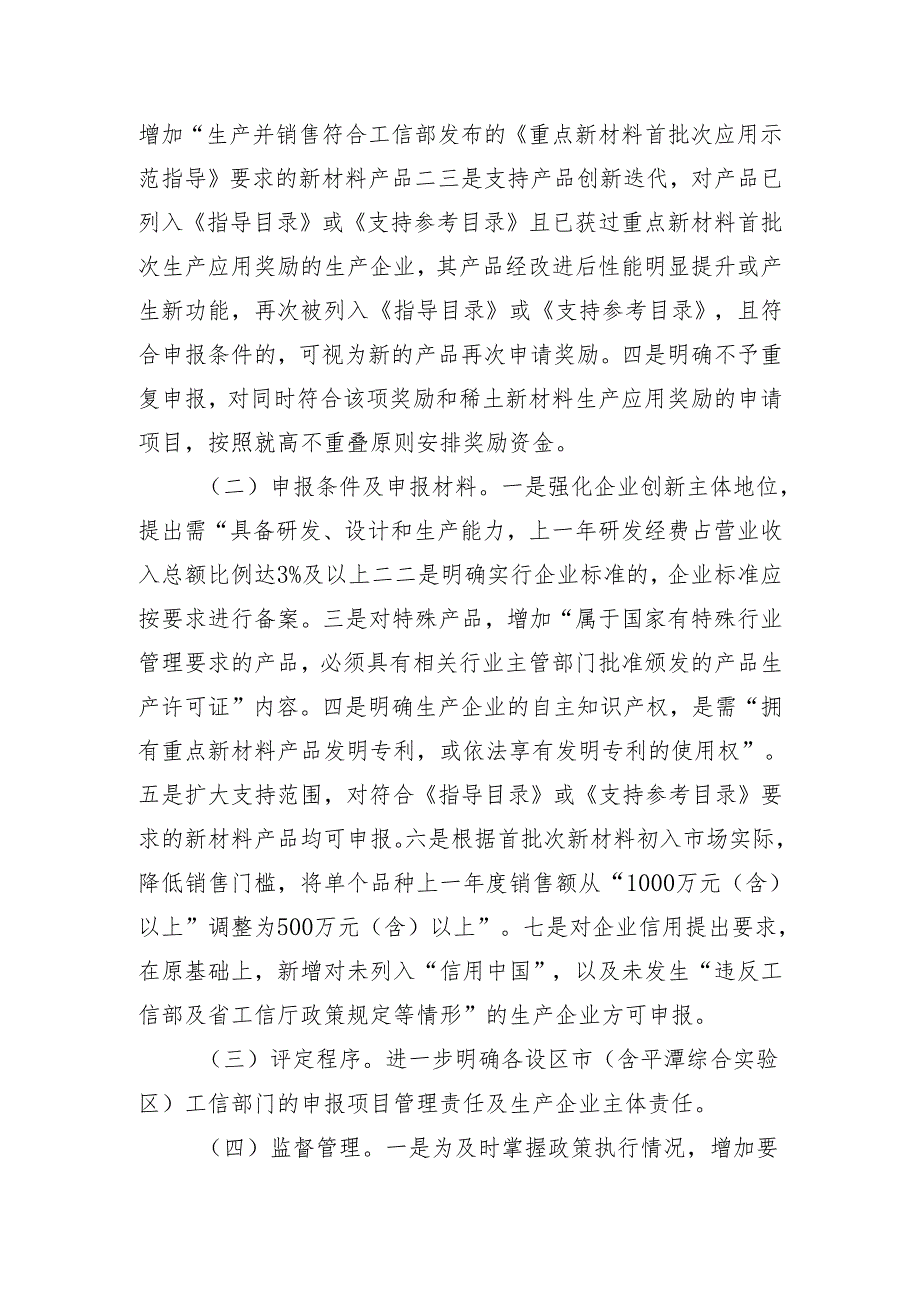 增加“生产并销售符合工信部发布的《重点新材料首批次应用示
范指导》要求的新材料产品二三是支持产品创新迭代，对产品已
列入《指导目录》或《支持参考目录》且已获过重点新材料首批
次生产应用奖励的生产企业，其产品经改进后性能明显提升或产
生新功能，再次被列入《指导目录》或《支持参考目录》，且符
合申报条件的，可视为新的产品再次申请奖励。四是明确不予重
复申报，对同时符合该项奖励和稀土新材料生产应用奖励的申请
项目，按照就高不重叠原则安排奖励资金。
（二）申报条件及申报材料。一是强化企业创新主体地位，
提出需“具备研发、设计和生产能力，上一年研发经费占营业收
入总额比例达3%及以上二二是明确实行企业标准的，企业标准应
按要求进行备案。三是对特殊产品，增加“属于国家有特殊行业
管理要求的产品，必须具有相关行业主管部门批准颁发的产品生
产许可证”内容。四是明确生产企业的自主知识产权，是需“拥
有重点新材料产品发明专利，或依法享有发明专利的使用权”。
五是扩大支持范围，对符合《指导目录》或《支持参考目录》要
求的新材料产品均可申报。六是根据首批次新材料初入市场实际，
降低销售门槛，将单个品种上一年度销售额从“1000万元（含）
以上”调整为500万元（含）以上”。七是对企业信用提出要求，
在原基础上，新增对未列入“信用中国”，以及未发生“违反工
信部及省工信厅政策规定等情形”的生产企业方可申报。
（三）评定程序。进一步明确各设区市（含平潭综合实验
区）工信部门的申报项目管理责任及生产企业主体责任。
（四）监督管理。一是为及时掌握政策执行情况，增加要